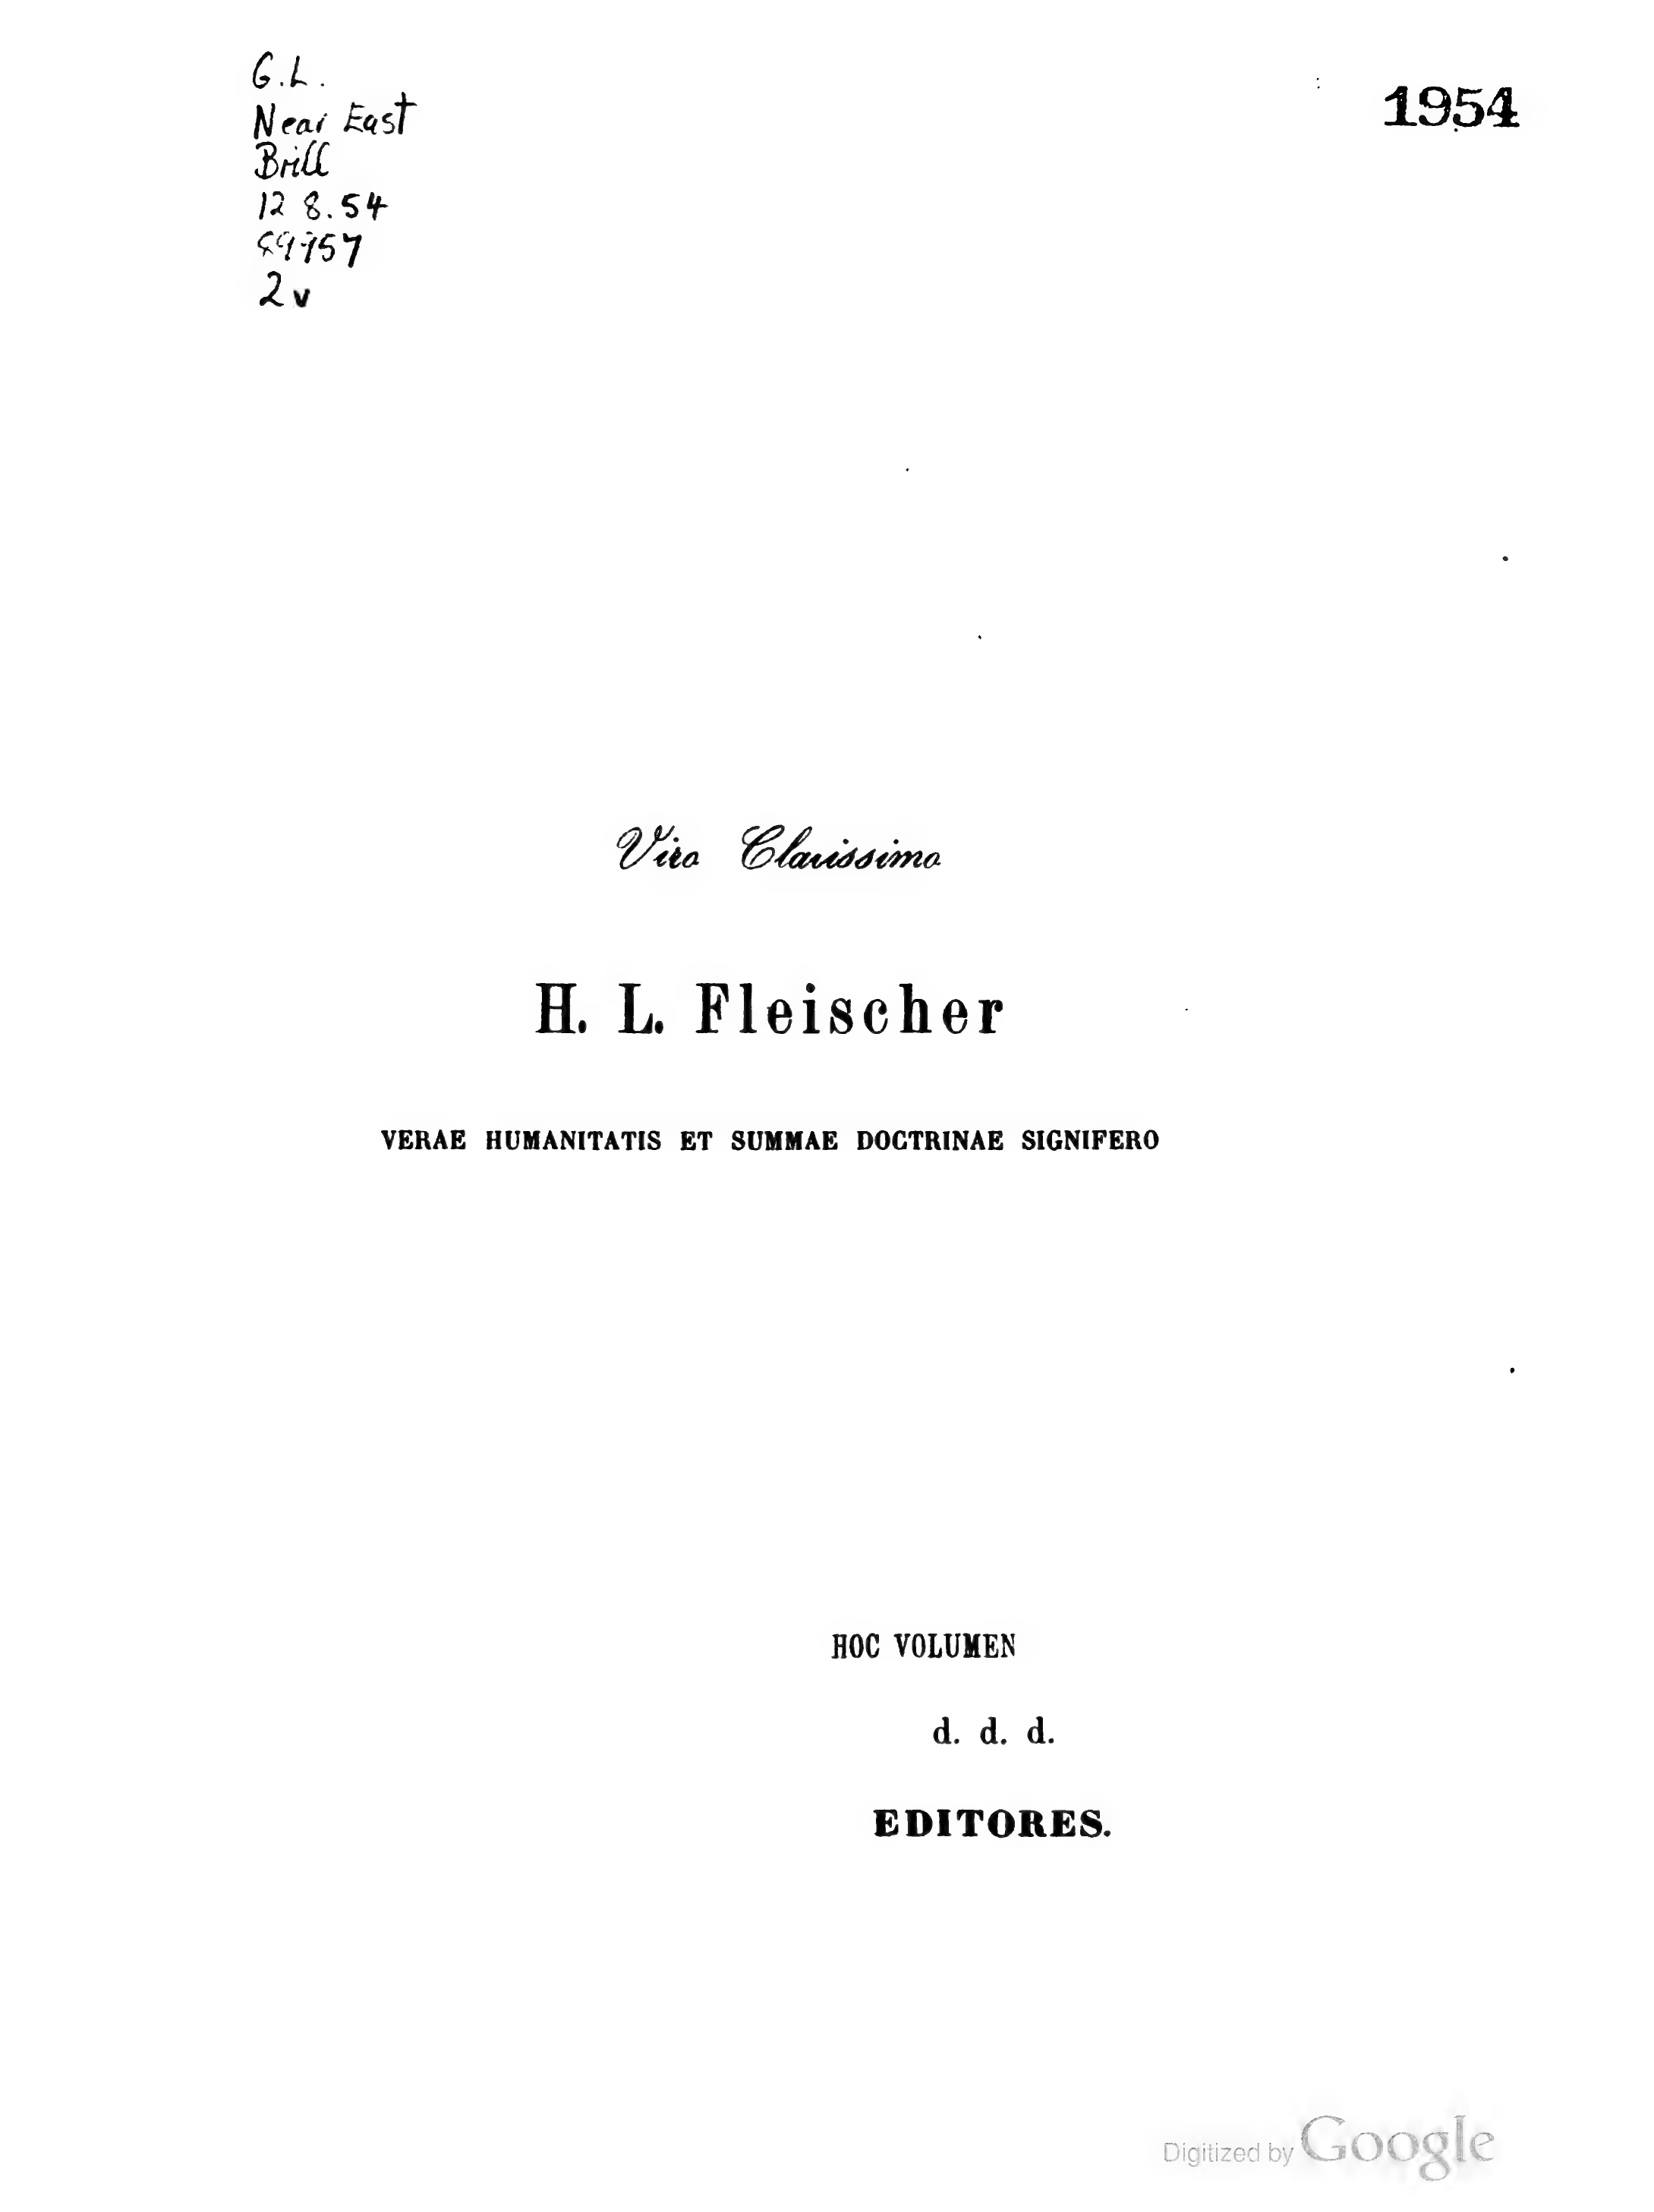 G.L.
Near East
Brill
12 8.54
2v
1954
Viro Clarissimo
H. L. Fleischer
VERAE HUMANITATIS ET SUMMAE DOCTRINAE SIGNIFERO
HOC VOLUMEN
d. d. d.
EDITORES.
Digitized by Google